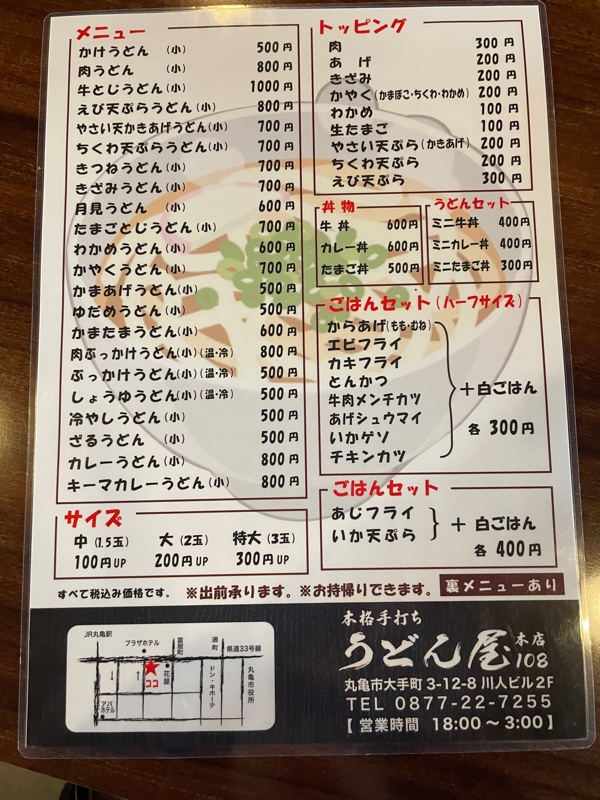 メニュー
かけうどん (小) 500円
肉うどん (小) 800円
牛とじうどん(小) 1000円
えび天ぷらうどん(小) 800円
やさい天かきあげうどん(小) 700円
ちくわ天ぷらうどん(小) 700円
きつねうどん(小) 700円
きざみうどん(小) 700円
月見うどん (小) 600円
たまごとじうどん(小) 700円
わかめうどん(小) 600円
かやくうどん(小) 700円
かまあげうどん(小) 500円
ゆだめうどん(小) 500円
かまたまうどん(小) 600円
肉ぶっかけうどん(小)(温・冷) 800円
ぶっかけうどん(小)(温・冷) 500円
しょうゆうどん(小)(温・冷) 500円
冷やしうどん(小) 500円
ざるうどん (小) 500円
カレーうどん(小) 800円
キーマカレーうどん(小) 800円
サイズ
中(1.5玉) 大(2玉) 特大(3玉)
100円UP 200円UP 300円UP
トッピング
肉 300円
あげ 200円
きざみ 200円
かやく(かまぼこ・ちくわ・わかめ) 200円
わかめ 100円
生たまご 100円
やさい天ぷら(かきあげ) 200円
ちくわ天ぷら 200円
えび天ぷら 300円
丼物
牛丼 600円
カレー丼 600円
たまご丼 500円
うどんセット
ミニ牛丼 400円
ミニカレー丼 400円
ミニたまご丼 300円
ごはんセット(ハーフサイズ)
からあげ(もも・むね)
エビフライ
カキフライ
とんかつ
牛肉メンチカツ
あげシュウマイ
いかゲソ
チキンカツ
+白ごはん
各300円
ごはんセット
あじフライ
いか天ぷら
+白ごはん
各400円
すべて税込み価格です。 ※出前承ります。※お持帰りできます。 裏メニューあり
JR丸亀駅
プラザホテル
富屋町
通町
県道33号線
ココ
花屋
ドン・キホーテ
丸亀市役所
アパホテル
本格手打ち
うどん屋 本店
108
丸亀市大手町3-12-8 川人ビル2F
TEL 0877-22-7255
【営業時間 18:00〜3:00】